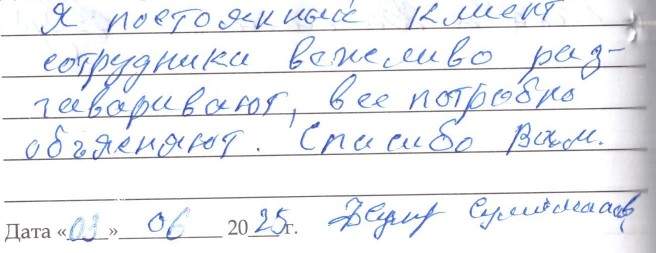 Я постоянный клиент
сотрудники вежливо раз-
гаваривают, все потробно
объясняют. Спасибо Вам.
Дата «03» 06 2025г.